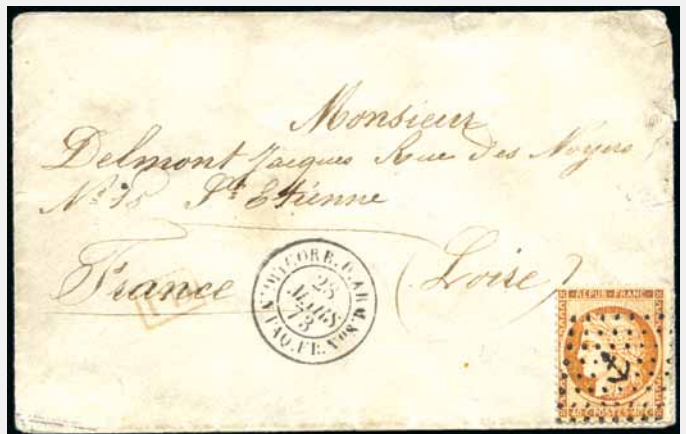 Monsieur
Delmont Jacques Rue des Noyers
No 15 St Etienne
France (Loire)
PD
CORR. D. ARM.
28
MARS
73
PAQ. FR. No 8.
REPUB. FRANC.
40 POSTES 40